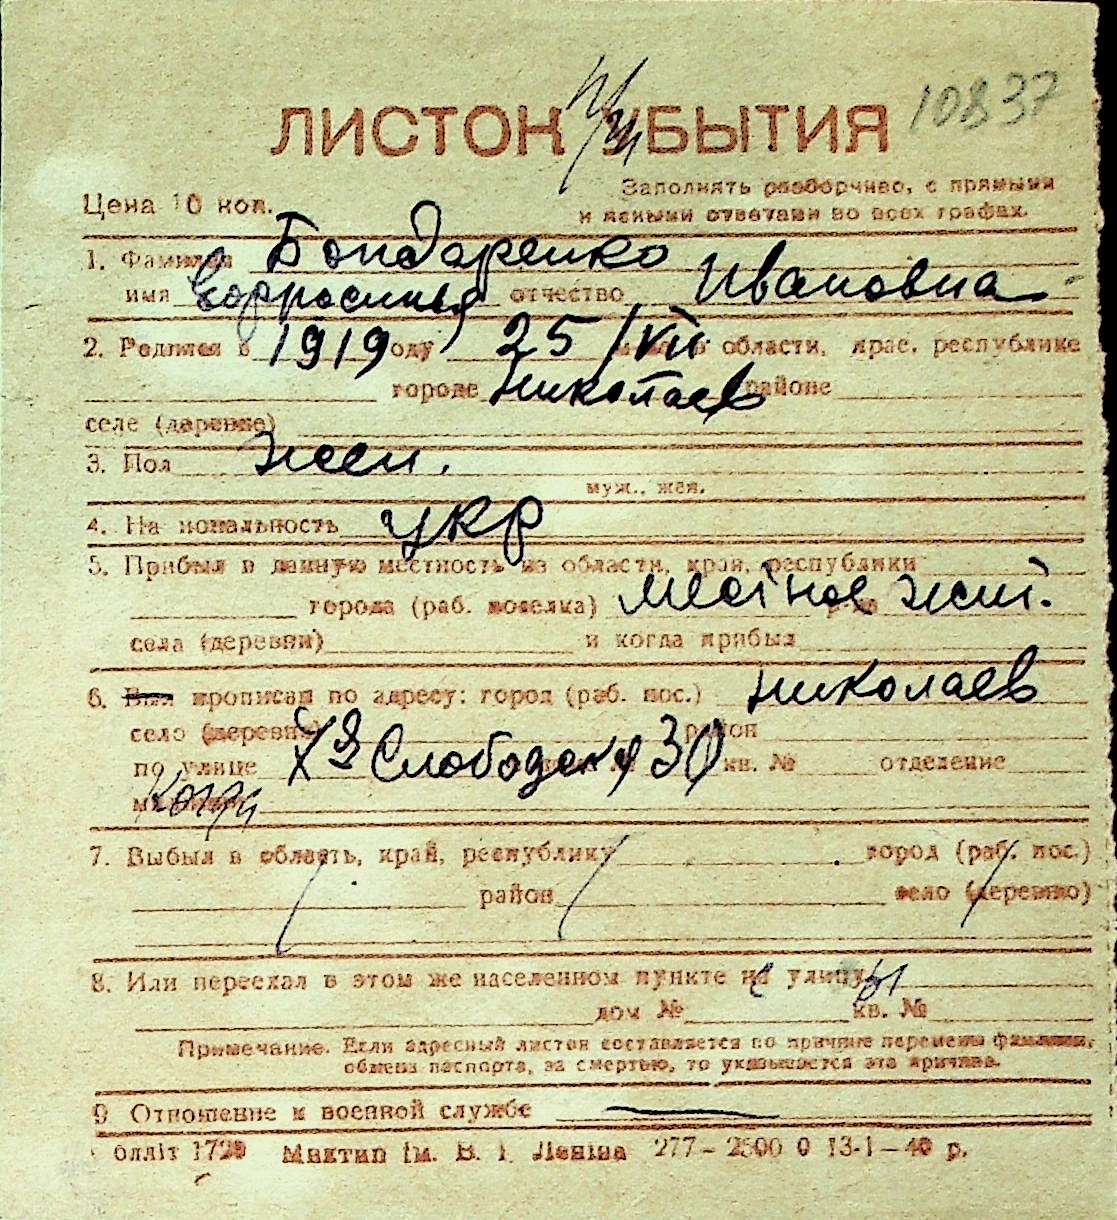 10837
ЛИСТОК УБЫТИЯ
Цена 10 коп.
Заполнять разборчиво, с прямыми
и ясными ответами во всех графах.
1. Фамилия Бондаренко
имя отчество Ивановна
2. Родился в 1919 году 25/VII области, крае, республике
городе Николаев районе
селе (деревне)
3. Пол жен.
муж., жен.
4. На иональность укр
5. Прибыл в данную местность из области, края, республики
города (раб. поселка) местное жит.
села (деревни) и когда прибыл
6. Был прописан по адресу: город (раб. пос.) Николаев
село (деревня) район
по улице Слободская 30 кв. № отделение
7. Выбыл в область, край, республику город (раб. пос.)
район село (деревню)
8. Или переехал в этом же населенном пункте на улицу
дом № кв. №
Примечание. Если адресный листок составляется по причине перемены фамилии,
обмена паспорта, за смертью, то указывается эта причина.
9 Отношение к военной службе —
блліт 1729 Миктип ім. В. І. Леніна 277 - 2500 0 13-І-40 р.